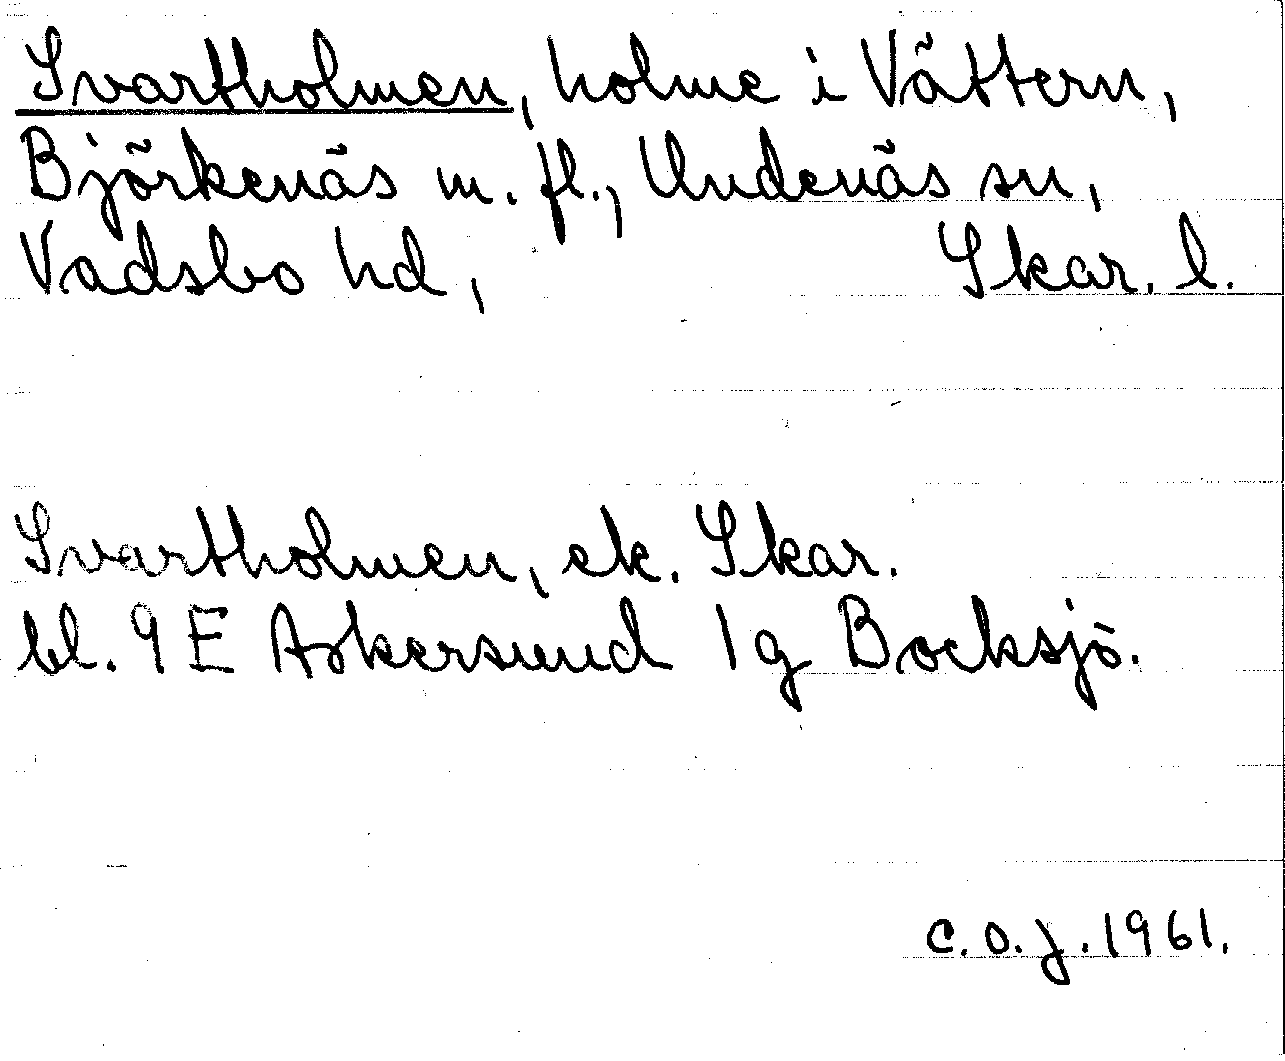 Svartholmen, holme i Vättern,
Björkenäs m. fl., Undenäs sn,
Vadsbo hd, Skar. l.
Svartholmen, ek. Skar.
bl. 9 E Askersund 1 g Bocksjö.
C.O.J. 1961.